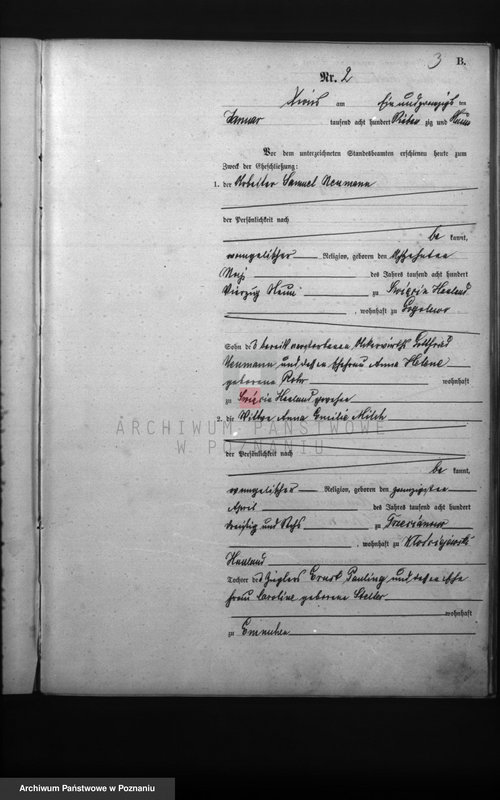 3 B.
Nr. 2
am Ein und zwanzigs ten
Januar tausend acht hundert Sieben zig und Neun
Vor dem unterzeichneten Standesbeamten erschienen heute zum
Zweck der Eheschließung:
1. der Arbeiter Samuel Neumann
der Persönlichkeit nach
be kannt,
evangelischer Religion, geboren den Achtzehnten
Maj des Jahres tausend acht hundert
Vierzig Neun zu Hauland
, wohnhaft zu
Sohn des bereits verstorbenen Ackerwirths Gottfried
Neumann und dessen Ehefrau Anna Helene
geborene Rohr wohnhaft
zu Hauland gewesen
2. die Wittwe Anna Emilie Milch
ARCHIWUM PAŃSTWOWE
W POZNANIU
der Persönlichkeit nach
be kannt,
evangelischer Religion, geboren den zwanzigsten
April des Jahres tausend acht hundert
dreißig und Sechs zu
, wohnhaft zu
Hauland
Tochter des Zieglers Ernst Pauling und dessen Ehe
frau Caroline geborene
wohnhaft
zu
Archiwum Państwowe w Poznaniu